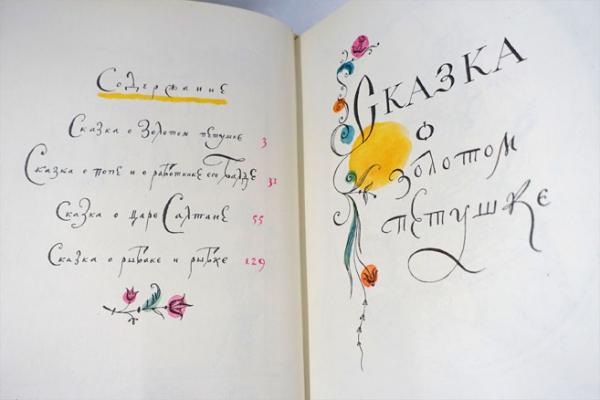 Содержание
Сказка о Золотом петушке 3
Сказка о попе и о работнике его Балде 31
Сказка о царе Салтане 55
Сказка о рыбаке и рыбке 129
Сказка
о
золотом
петушке